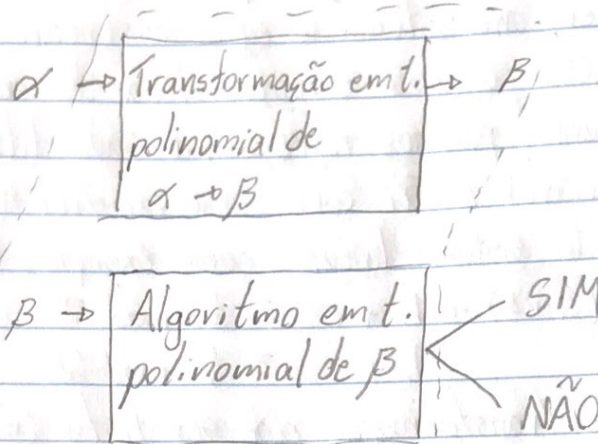 α → Transformação em t. → β
polinomial de
α → β
β → Algoritmo em t. SIM
polinomial de β
NÃO